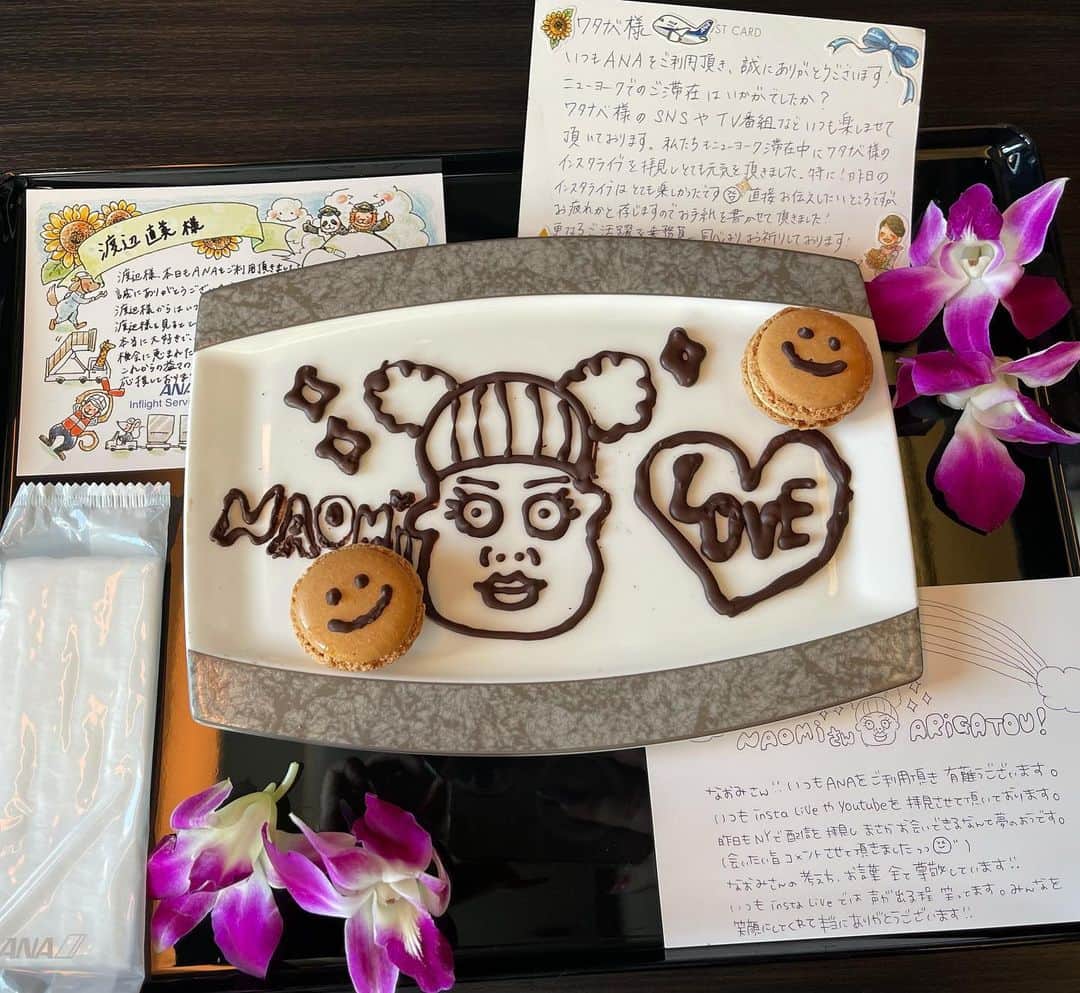 ワタナベ様
ST CARD
いつもANAをご利用頂き、誠にありがとうございます!
ニューヨークでのご滞在はいかがでしたか?
ワタナベ様のSNSやTV番組などいつも楽しませて
頂いております。私たちもニューヨーク滞在中にワタナベ様の
インスタライブを拝見しとても元気を頂きました。特に!昨日の
インスタライブはとても楽しかったです 直接お伝えしたいところですが、
お疲れかと存じますのでお手紙を書かせて頂きました!
更なるご活躍を乗務員一同心よりお祈りしております!
渡辺 直美 様
渡辺様、本日もANAをご利用頂きまし
誠にありがとうござ
渡辺様からはいつ
渡辺様を見ると
本当に大好きで、
機会に恵まれた
これからの益々の
応援しておりま
ANA
Inflight Serv
NAOMi
LOVE
NAOMiさん ARiGATOU!
なおみさん!!いつもANAをご利用頂き有難うございます。
いつもinsta LiveやYoutubeを拝見させて頂いております。
昨日もNYで配信を拝見しまさかお会いできるなんて夢のようです。
(会いたい旨コメントさせて頂きましたっっ)
なおみさんの考え方、お言葉全て尊敬しています!!
いつもinsta Liveでは声が出る程笑ってます。みんなを
笑顔にしてくれて本当にありがとうございます!!
ANA